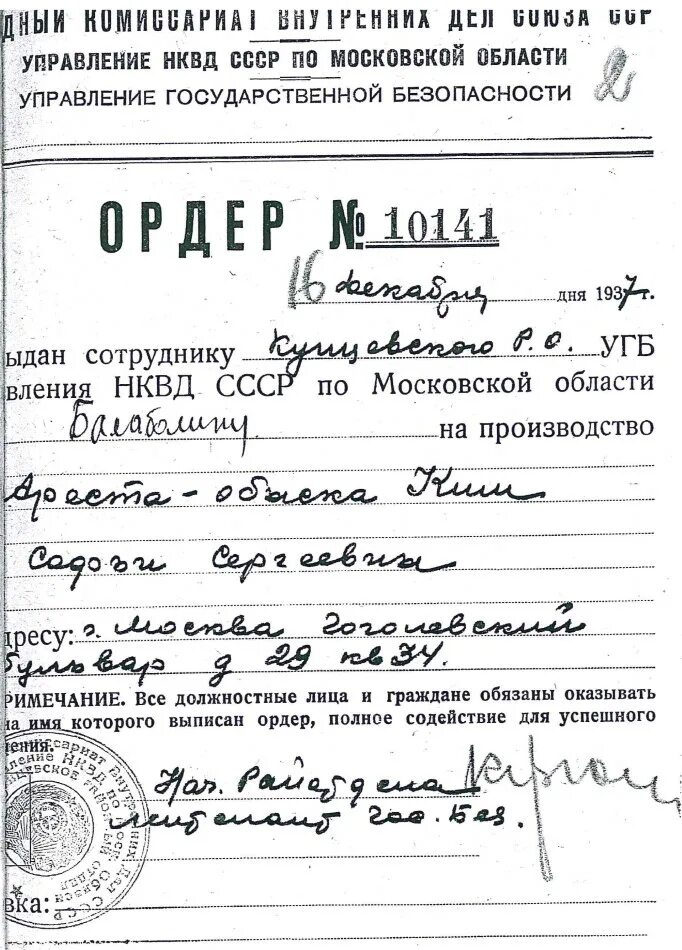 дный комиссариат внутренних дел союза сср
УПРАВЛЕНИЕ НКВД СССР ПО МОСКОВСКОЙ ОБЛАСТИ
УПРАВЛЕНИЕ ГОСУДАРСТВЕННОЙ БЕЗОПАСНОСТИ
2
ОРДЕР № 10141
16 декабря дня 1937г.
ыдан сотруднику Кунцевского Р.О. УГБ
вления НКВД СССР по Московской области
Балаболину на производство
Ареста - обыска Ким
Сергеевны
дресу: г. Москва Гоголевский
бульвар д 29 кв 34.
РИМЕЧАНИЕ. Все должностные лица и граждане обязаны оказывать
на имя которого выписан ордер, полное содействие для успешного
нения.
Нач. Райотдела
лейтенант гос. Без.
вка: